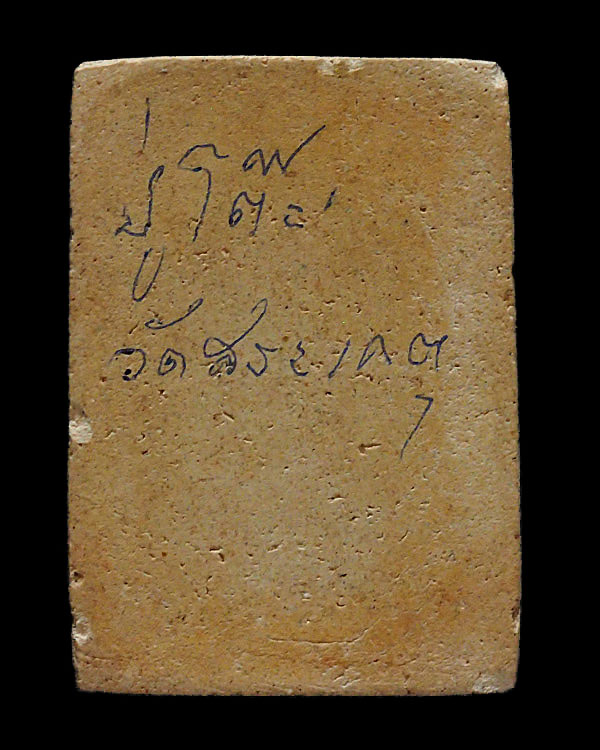 ปู่โต๊ะ
วัดสระเกตุ